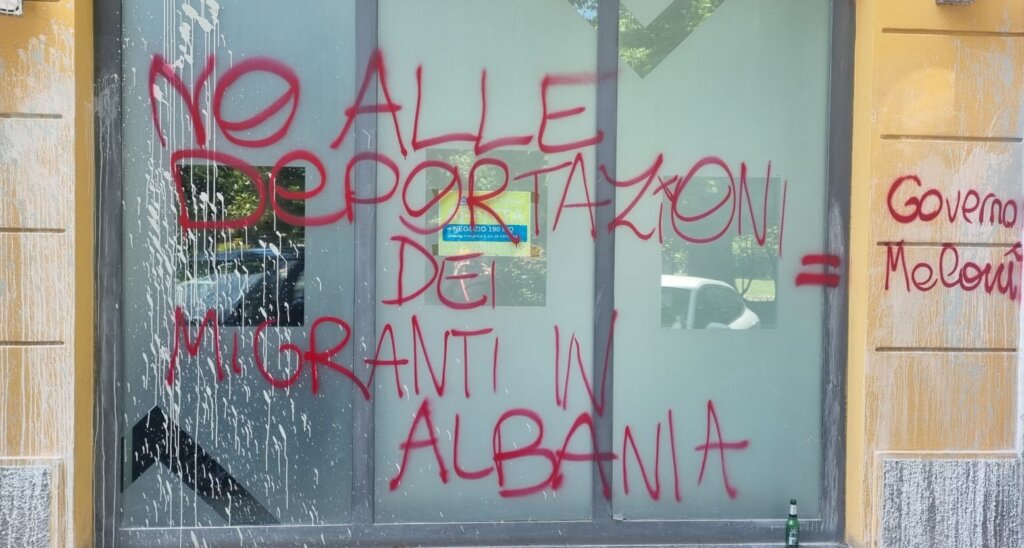 NO ALLE
DEPORTAZIONI
DEI
MIGRANTI IN
ALBANIA
=
Governo
Meloni
NEGOZIO 190